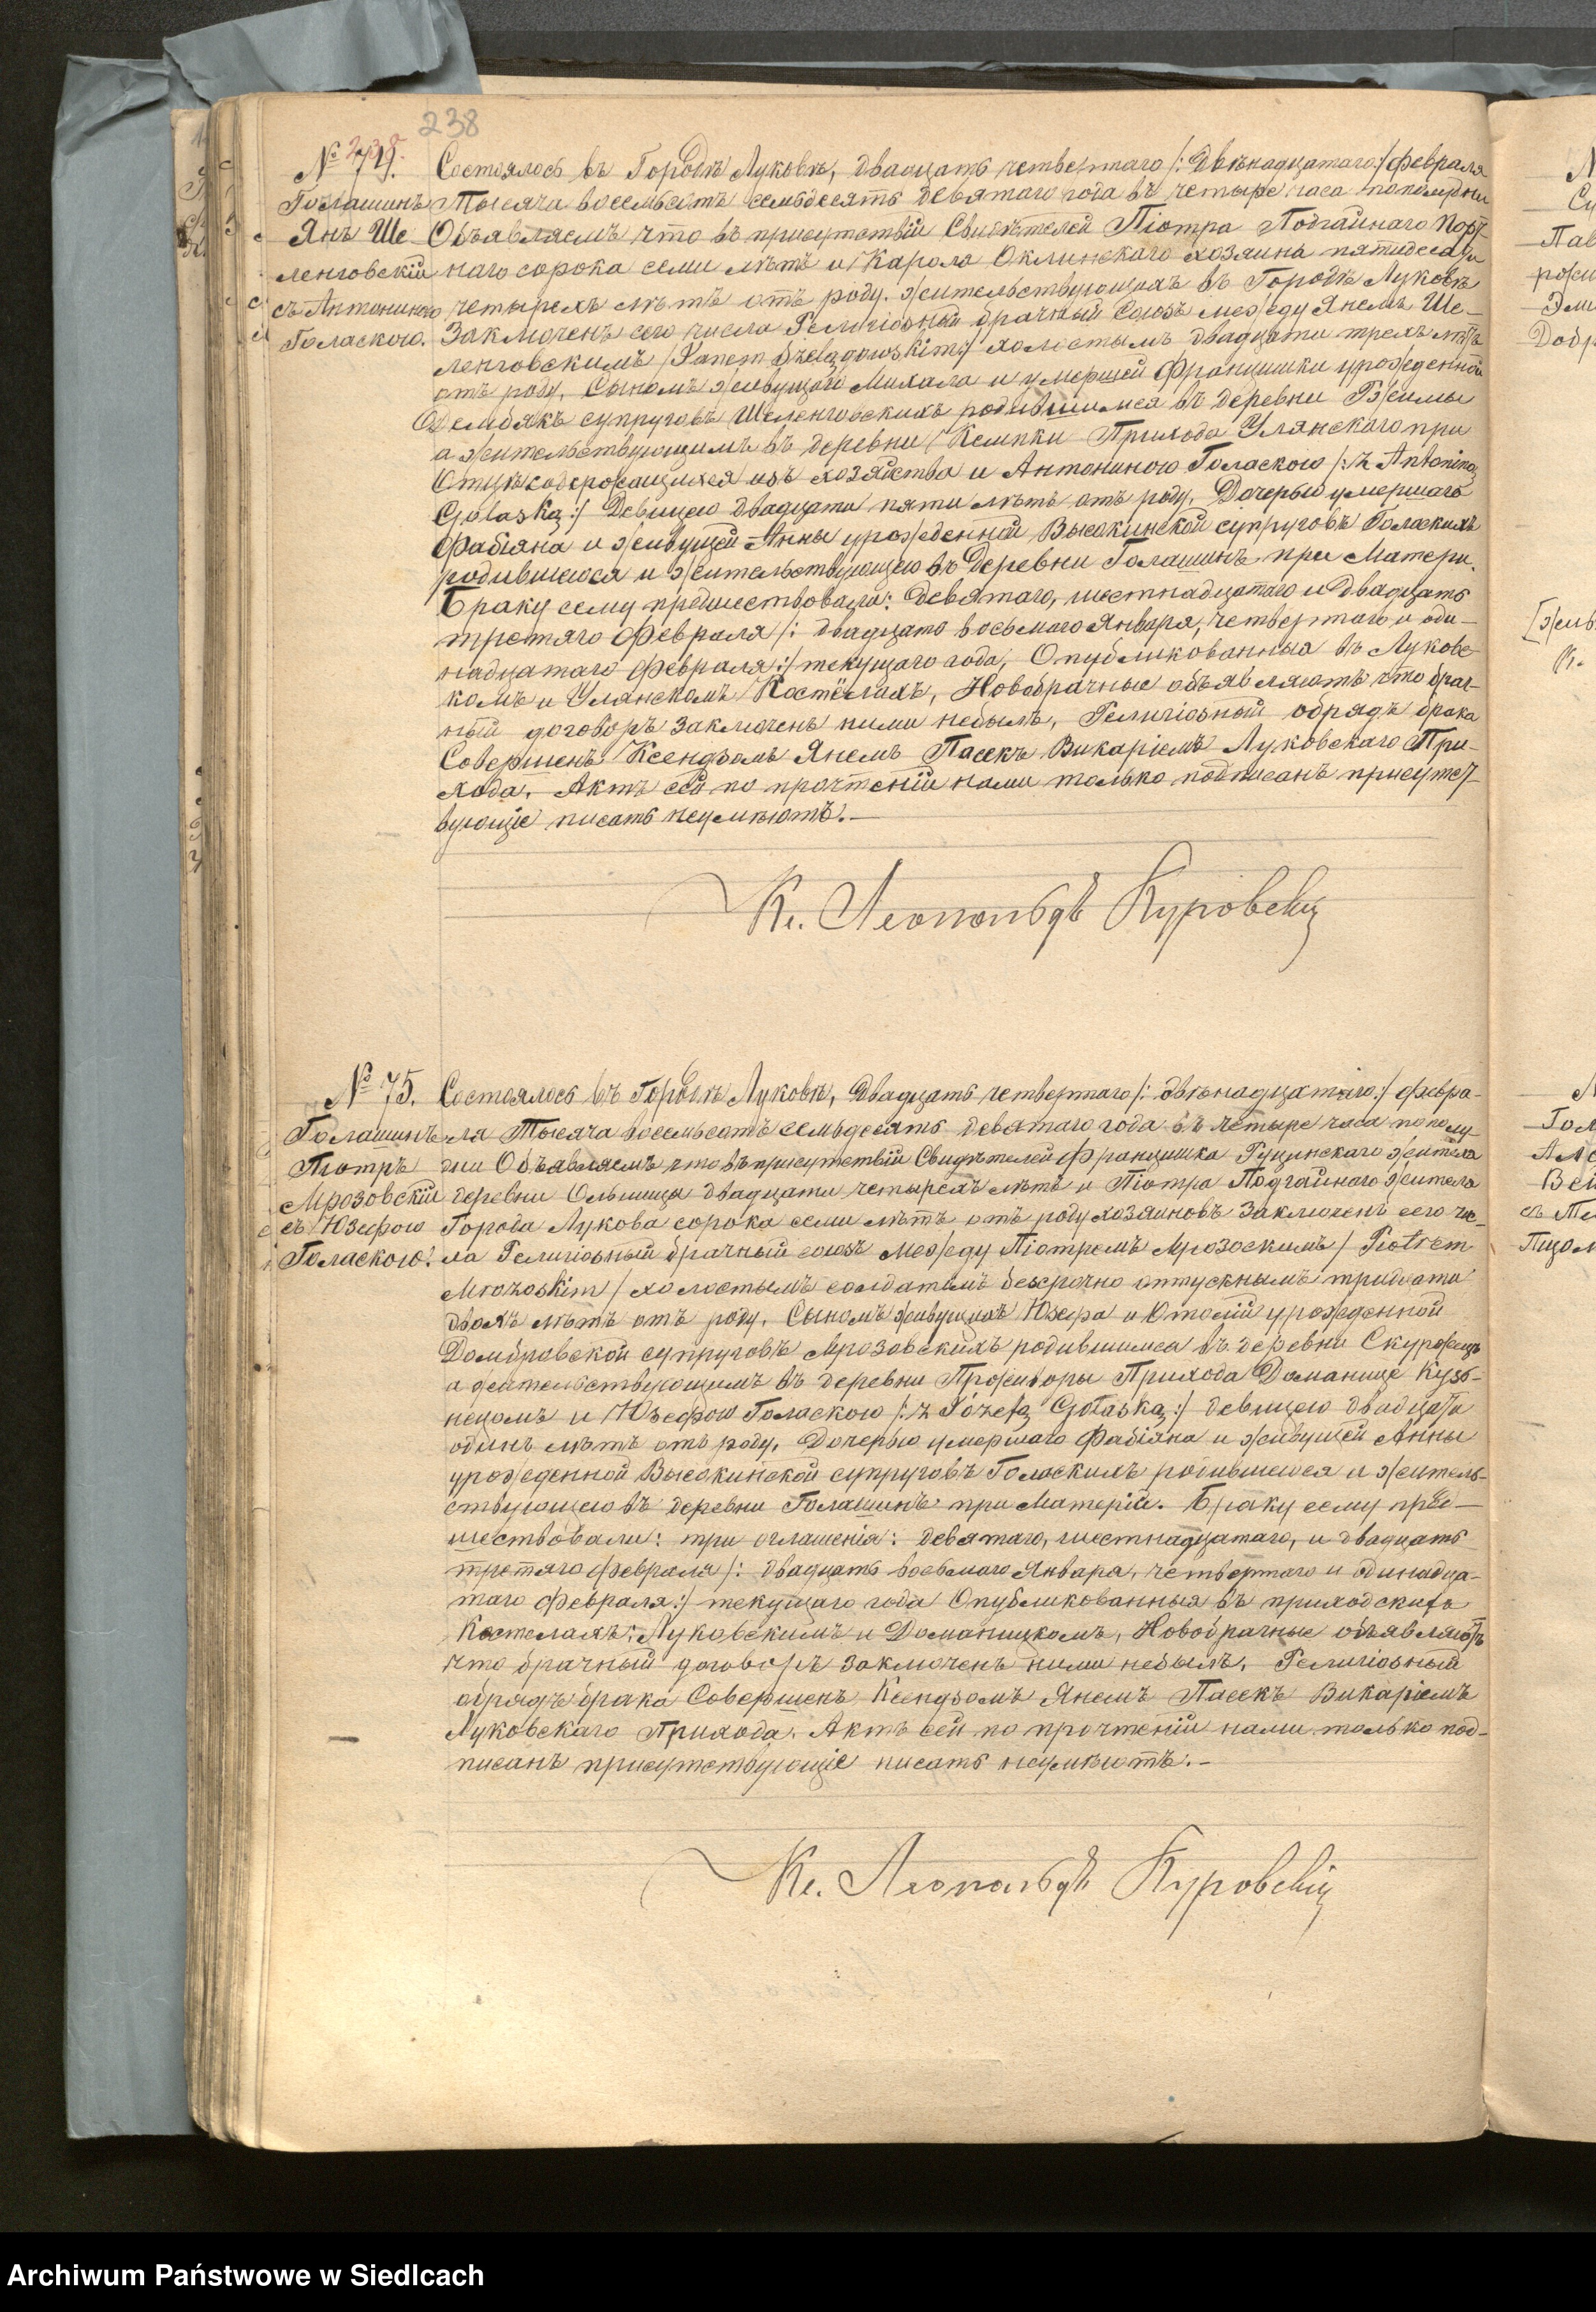 238
№ 74.
Голашинъ
Янъ Ше
ленговскій
съ Антониною
Голаскою.
Состоялось въ Городѣ Луковѣ, двадцать четвертаго /: Двѣнадцатаго:/ Февраля
Тысяча восемьсотъ семьдесятъ девятаго года въ четыре часа пополудни
Объявляемъ что въ присутствіи Свидѣтелей Піотра Подгайнаго Порт-
наго сорока семи лѣтъ и Кароля Оклинскаго хозяина пятидесяти
четырехъ лѣтъ отъ роду. жительствующихъ въ Городѣ Луковѣ
Заключенъ сего числа Религіозный брачный Союзъ между Янемъ Ше-
ленговскимъ /Janem Szelągowskim:/ холостымъ двадцати трехъ лѣтъ
отъ роду, Сыномъ живущаго Михала и умершей Францишки урожденной
Оземблкъ супруговъ Шеленговскихъ родившимся въ деревни Ржимы
а жительствующимъ въ деревни Кемпки Прихода Улянскаго при
Отцѣ содержащихся изъ хозяйства и Антониною Голаскою /: z Antoniną
Gołaską :/ Девицею двадцати пяти лѣтъ отъ роду, Дочерью умершаго
Фабіяна и живущей Анны урожденной Высокинской супруговъ Голаскихъ
родившеюся и жительствующею въ Деревни Голашинъ при Матери.
Браку сему предшествовали: Девятаго, шестнадцатаго и двадцать
третяго Февраля /: двадцать восьмаго Января, четвертаго и оди-
надцатаго Февраля :/ текущаго года, Опубликованныа въ Луковс-
комъ и Улянскомъ Костёлахъ, Новобрачные объявляютъ что брач-
ный договоръ заключенъ ними небылъ, Религіозный обрядъ брака
Совершенъ Ксендзомъ Янемъ Пасекъ Викаріемъ Луковскаго При-
хода. Актъ сей по прочтеніи нами только подписанъ присутст-
вующіе писать неумѣютъ.—
Кс. Леопольдъ Куровскій
№ 75.
Голашинъ
Піотръ
Мрозовскій
съ Юзефою
Голаскою.
Состоялось въ Городѣ Луковѣ, двадцать четвертаго /: двѣнадцатаго :/ февра-
ля Тысяча восемьсотъ семьдесятъ девятаго года въ четыре часа пополу-
дни Объявляемъ что въ присутствіи Свидѣтелей Францишка Гущинскаго жителя
деревни Ольшицы двадцати четырехъ лѣтъ и Піотра Подгайнаго жителя
Города Лукова сорока семи лѣтъ отъ роду хозяиновъ Заключенъ сего чи-
ла Религіозный брачный союзъ между Піотремъ Мрозоскимъ / Piotrem
Mrozoskim / холостымъ солдатымъ безсрочно отпускнымъ тридцати
двохъ лѣтъ отъ роду, Сыномъ живущихъ Юзефа и Отолій урожденной
Домбровской супруговъ Мрозовскихъ родившимся въ деревни Скуржецъ
а жительствующимъ въ деревни Прживоры Прихода Доманице Кузь-
нецомъ и Юзефою Голаскою /: z Józefą Gołaską :/ девицею двадцать
одинъ лѣтъ отъ роду, Дочерью умершаго Фабіяна и живущей Анны
урожденной Высокинской супруговъ Голаскихъ родившеюся и житель-
ствующею въ деревни Голашинъ при Матеріи. Браку сему пред-
шествовали: три оглашенія: девятаго, шестнадцатаго, и двадцать
третяго февраля /: двадцать восьмаго Января, четвертаго и одинадца-
таго Февраля :/ текущаго года Опубликованныя въ приходскихъ
Костелахъ: Луковскимъ и Доманицкомъ, Новобрачные объявляютъ
что брачный договоръ заключенъ ними небылъ, Религіозный
обрядъ брака Совершенъ Ксендзомъ Янемъ Пасекъ Викаріемъ
Луковскаго Прихода. Актъ сей по прочтеніи нами только под-
писанъ присутствующіе писать неумѣютъ.—
Кс. Леопольдъ Куровскій
Archiwum Państwowe w Siedlcach